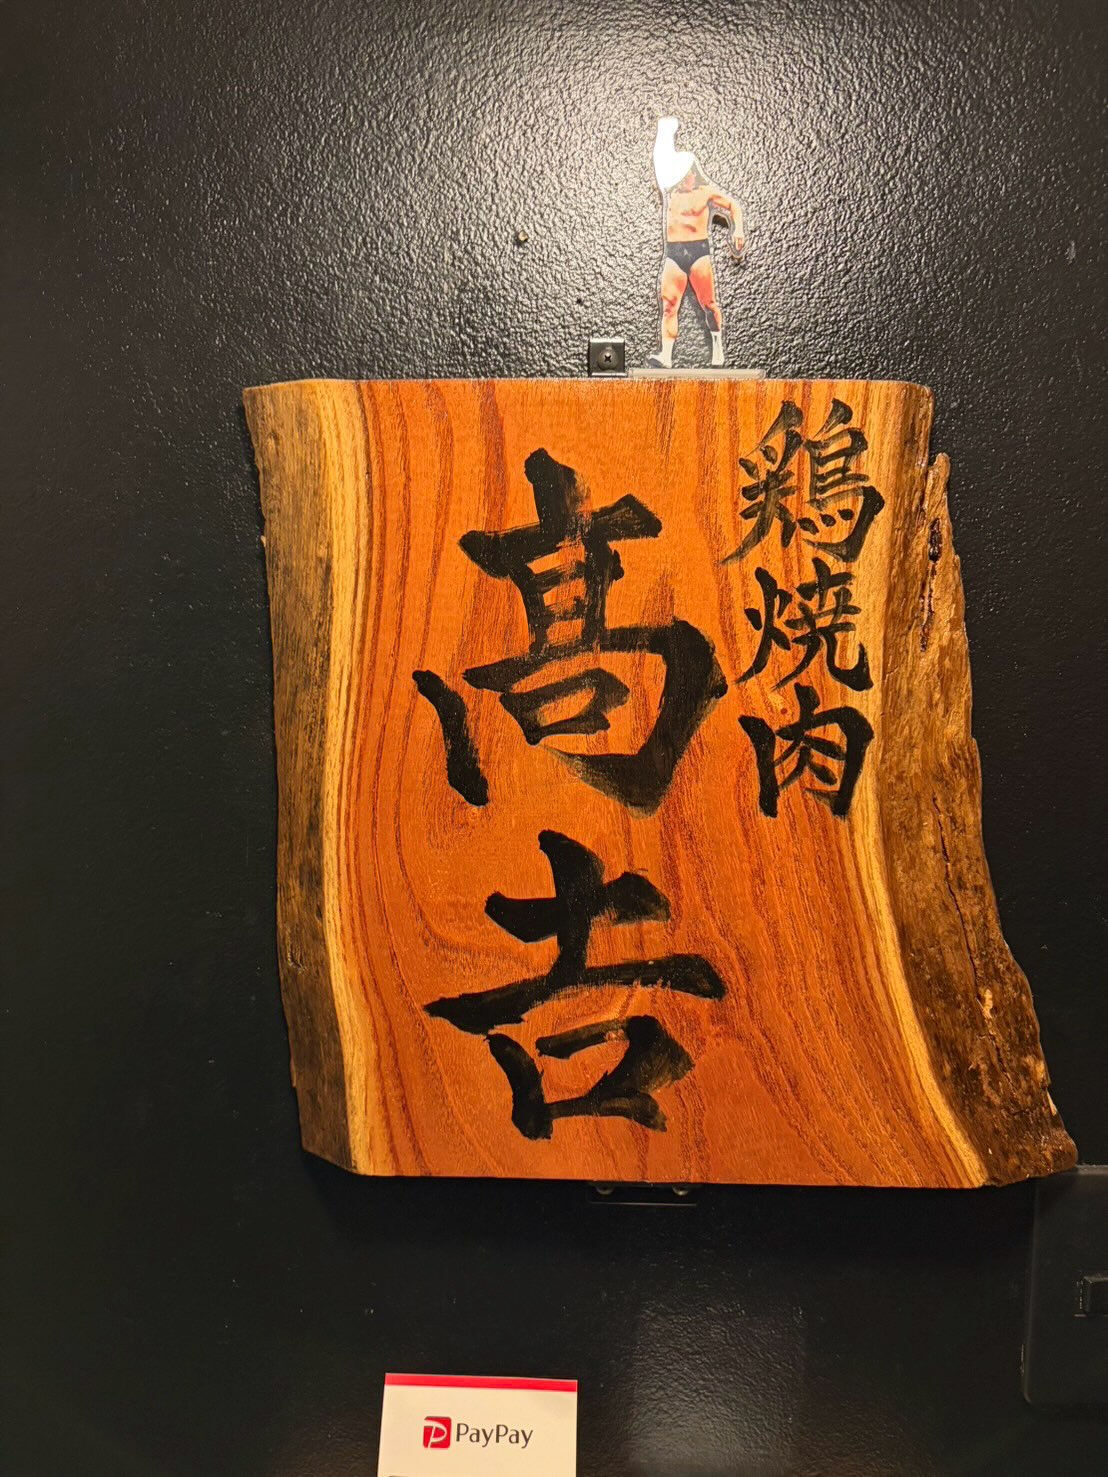 鶏焼肉
髙𠮷
PayPay